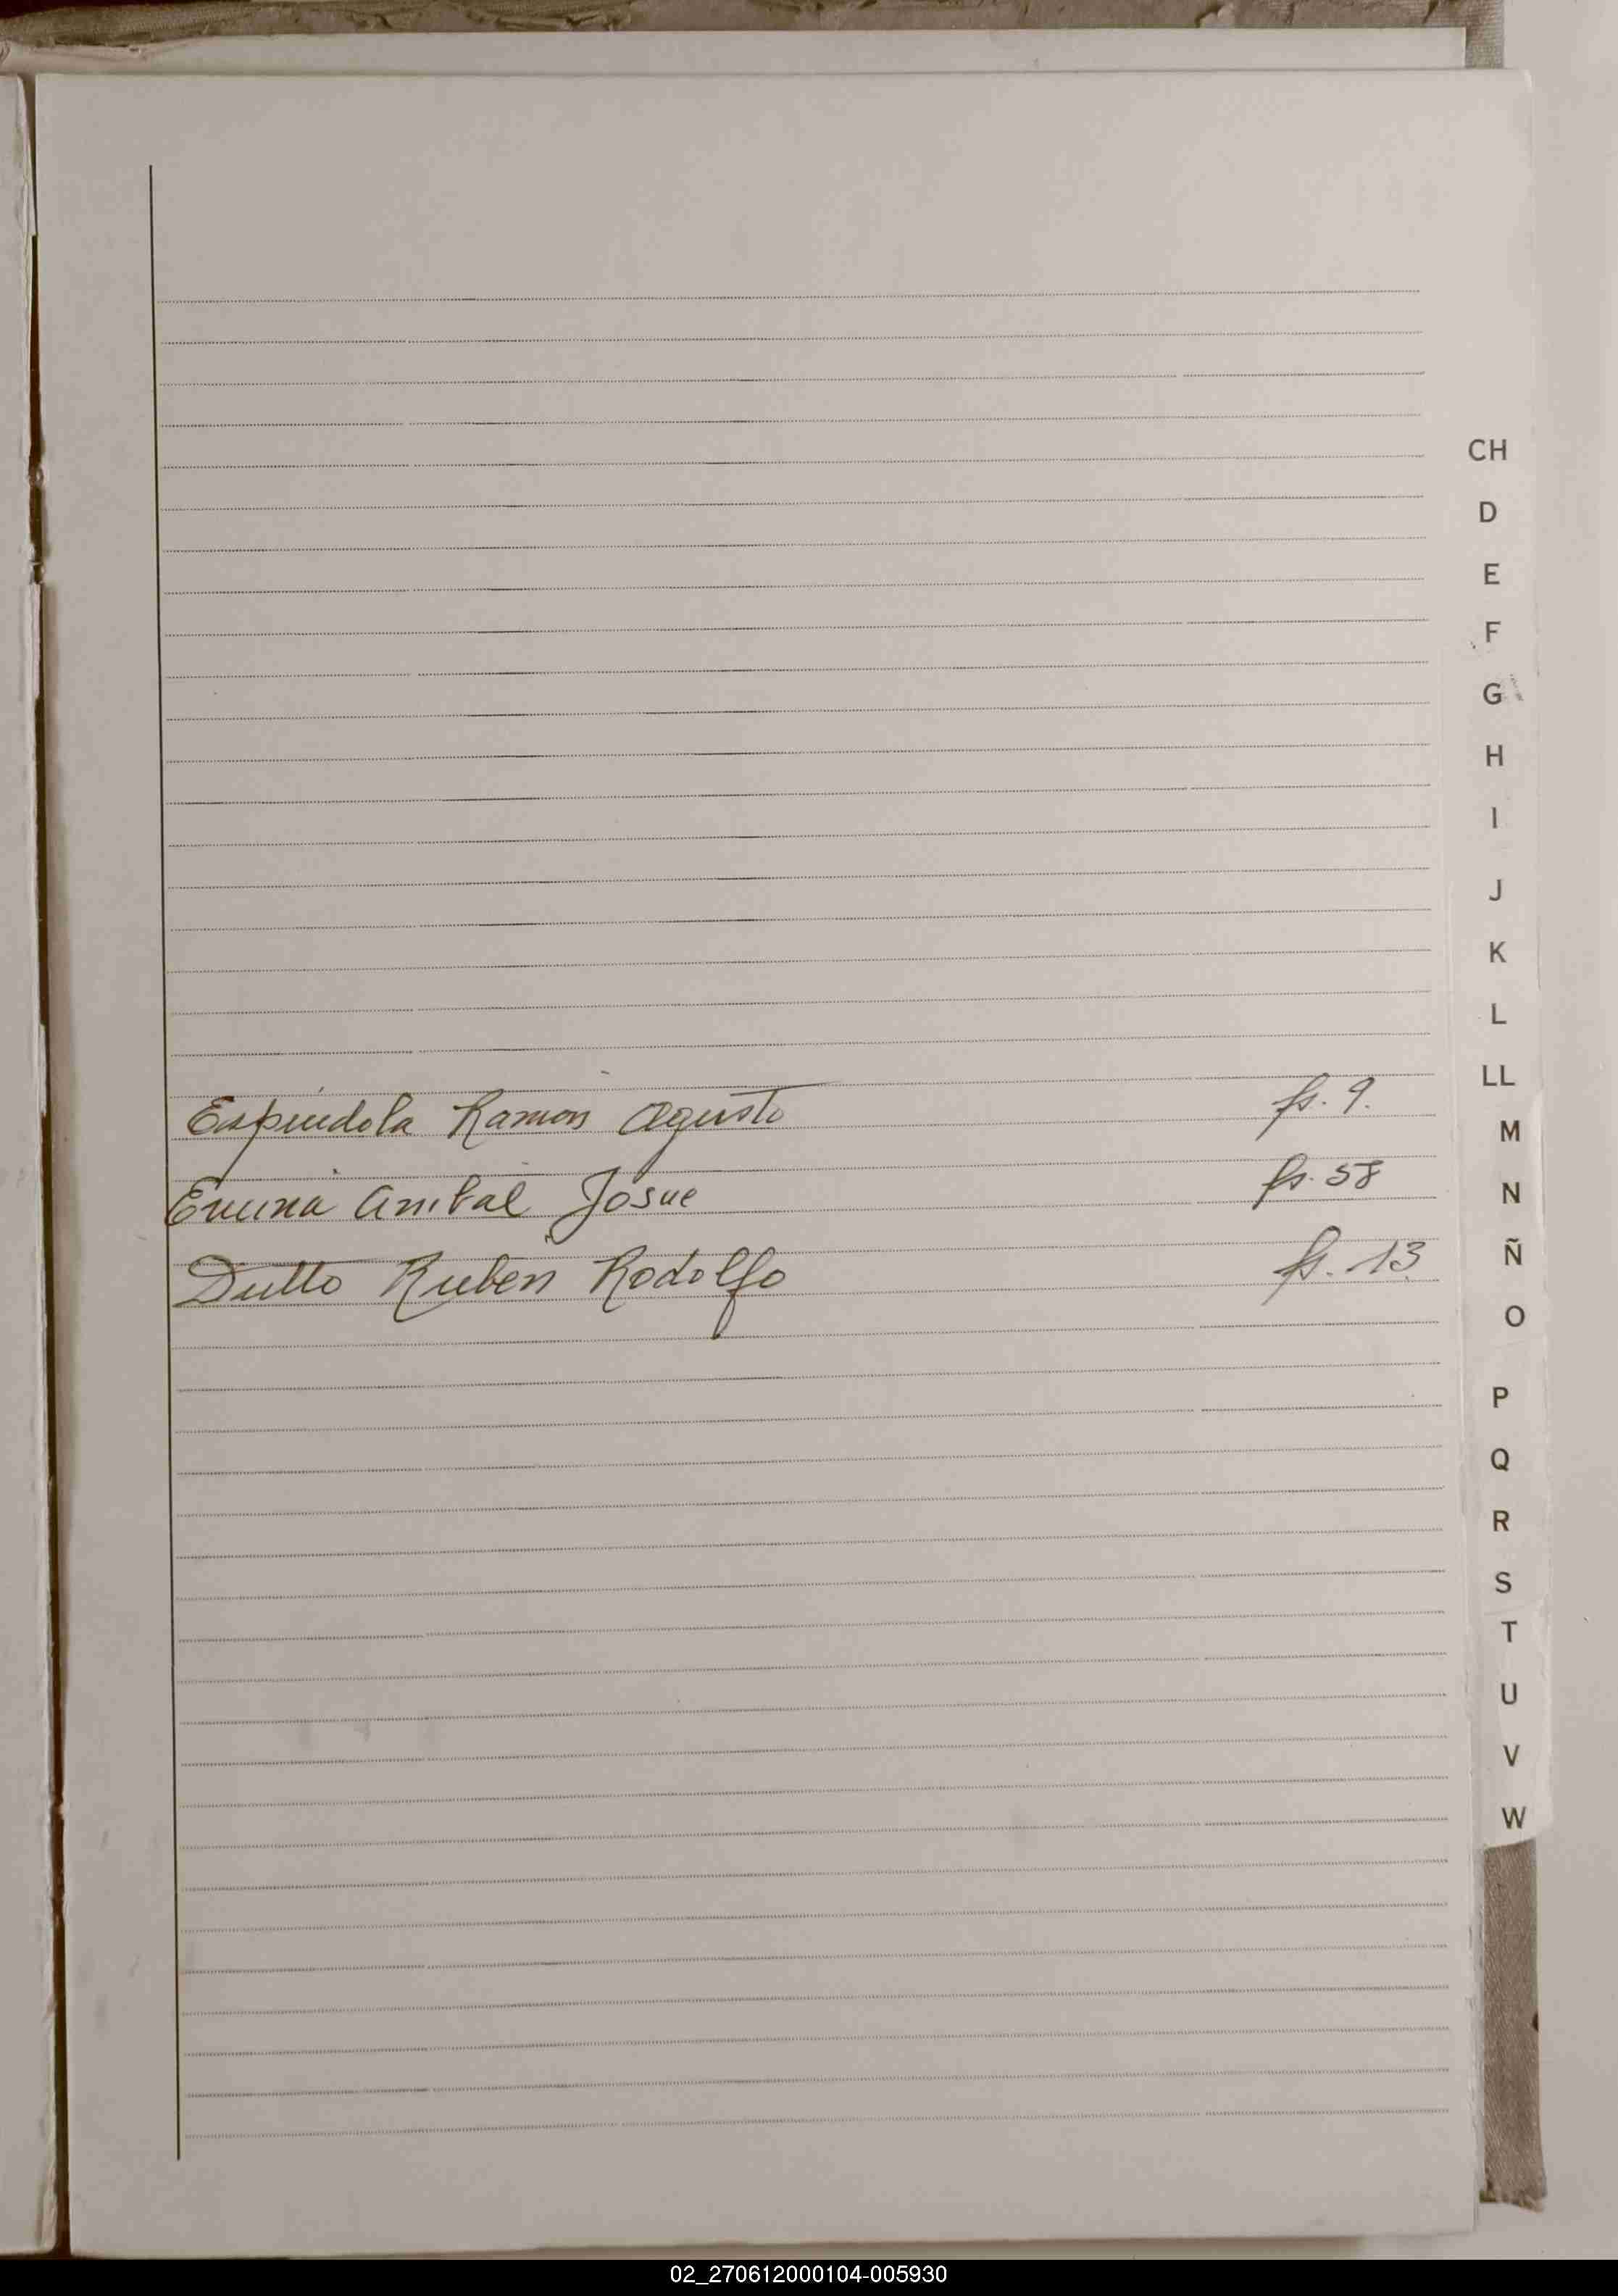 CH
D
E
F
G
H
I
J
K
L
LL
Espindola Ramon Agusto fs. 9.
M
Anibal Josue fs. 58
N
Dutto Ruben Rodolfo fs. 13
Ñ
O
P
Q
R
S
T
U
V
W
02_270612000104-005930